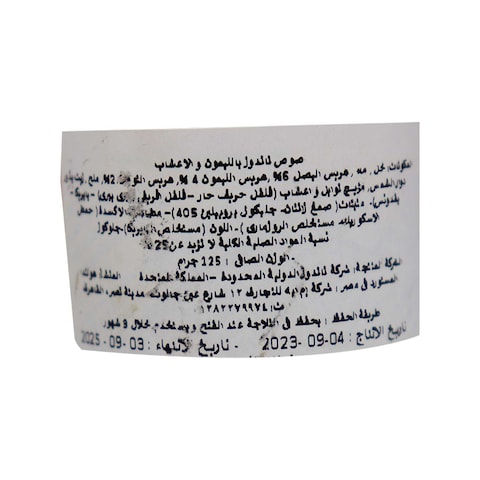 صوص ناندوز بالليمون والاعشاب
المكونات: خل، ماء، هريس البصل 6%، هريس الليمون 4%، هريس الثوم 2%، ملح، زيت
دوار الشمس، مزيج توابل و اعشاب (فلفل حريف حار - فلفل حريف - بابريكا -
بقدونس)، مثبتات( صمغ زانثان، جليكول بروبيلين 405)- مضادات الاكسدة( حمض
الاسكوربيك، مستخلص الروزماري )- اللون ( مستخلص البابريكا)جلوكوز
نسبة المواد الصلبة الكلية لا تزيد عن 25%
الوزن الصافى : 125 جرام
الشركة المنتجة: شركة ناندوز الدولية المحدودة - المملكة المتحدة المنشأ: هولندا
المستورد فى مصر: شركة إم ايه للتجارة ١٢ شارع عين جالوت، مدينة نصر، القاهرة
ت: ١٢٨٢٢٧٩٩٧٤
طريقة الحفظ : يحفظ فى الثلاجة عند الفتح و يستخدم خلال 9 شهور
تاريخ الانتاج : 04-09-2023 - تاريخ الانتهاء : 03-09-2025